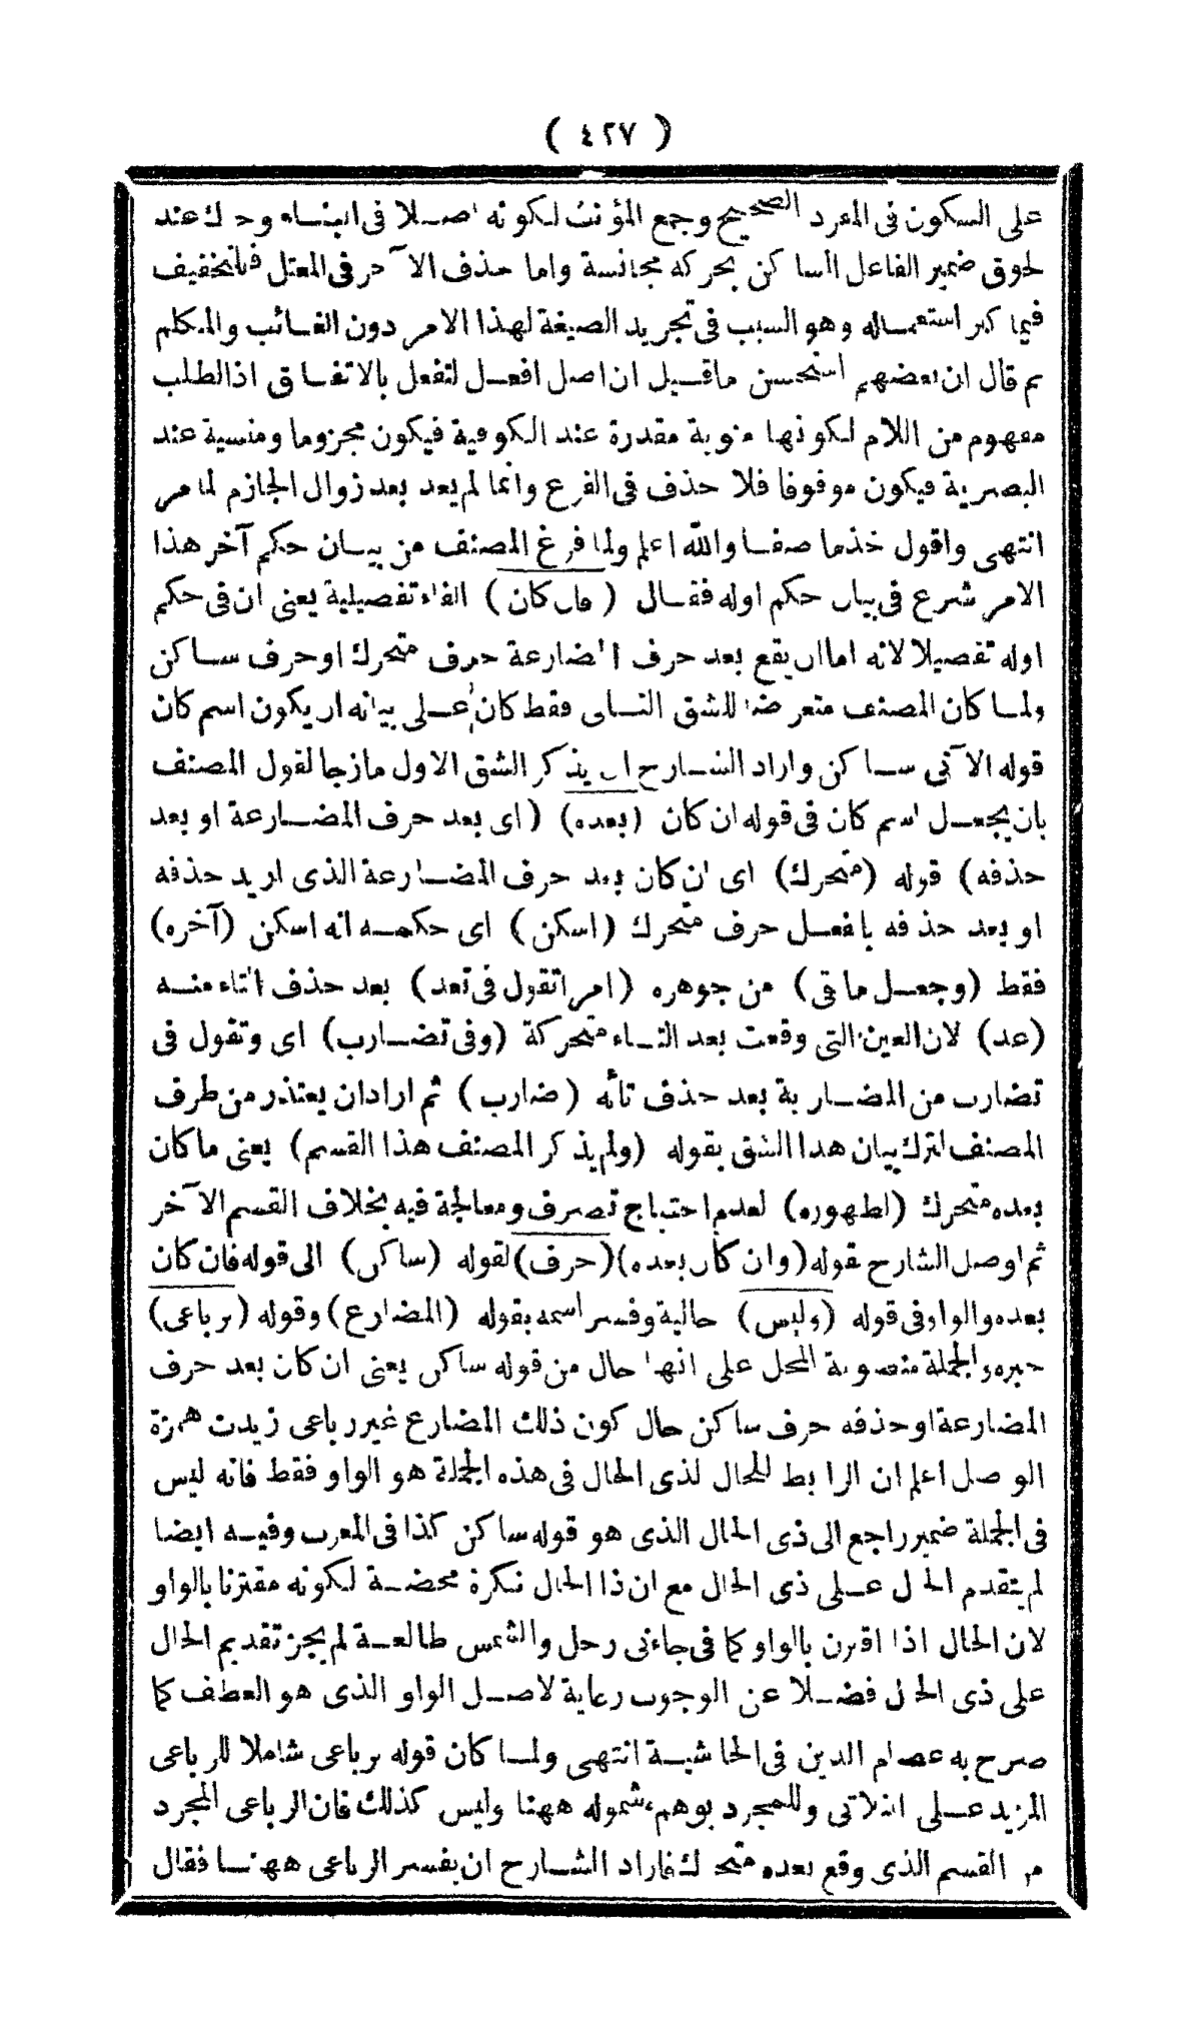 ( ٤٢٧ )
على السكون فى المفرد الصحيح وجمع المؤنث لكونه اصلا فى البناء وحرك عند
لحوق ضمير الفاعل الساكن بحركة مجانسة واما حذف الآخر فى المعتل فللتخفيف
فيما كثر استعماله وهو السبب فى تجريد الصيغة لهذا الامر دون الغائب والمتكلم
ثم قال ان بعضهم استحسن ماقيل ان اصل افعل لتفعل بالاتفاق اذالطلب
مفهوم من اللام لكونها منوية مقدرة عند الكوفية فيكون مجزوما ومنسية عند
البصرية فيكون موقوفا فلا حذف فى الفرع وانما لم يعد بعد زوال الجازم لما مر
انتهى واقول خذما صفا والله اعلم ولما فرغ المصنف من بيان حكم آخر هذا
الامر شرع فى بيان حكم اوله فقال ( فان كان ) الفاء تفصيلية يعنى ان فى حكم
اوله تفصيلا لانه اماان يقع بعد حرف المضارعة حرف متحرك اوحرف ساكن
ولما كان المصنف متعرضا للشق الثانى فقط كان على بيانه ان يكون اسم كان
قوله الآتى ساكن واراد الشارح ان يذكر الشق الاول مازجا لقول المصنف
بان يجعل اسم كان فى قوله ان كان (بعده) (اى بعد حرف المضارعة او بعد
حذفه) قوله (متحرك) اى ان كان بعد حرف المضارعة الذى اريد حذفه
او بعد حذفه بالفعل حرف متحرك (اسكن) اى حكمه انه اسكن (آخره)
فقط (وجعل مابقى) من جوهره (امرا تقول فى تعد) بعد حذف التاء منه
(عد) لان العين التى وقعت بعد التاء متحركة (وفى تضارب) اى وتقول فى
تضارب من المضاربة بعد حذف تائه (ضارب) ثم ارادان يعتذر من طرف
المصنف لترك بيان هذا الشق بقوله (ولم يذكر المصنف هذا القسم) يعنى ماكان
بعده متحرك (لظهوره) لعدم احتياج تصرف ومعالجة فيه بخلاف القسم الآخر
ثم اوصل الشارح بقوله (وان كان بعده) (حرف) لقوله (ساكن) الى قوله فان كان
بعده والواو فى قوله (وليس) حالية وفسر اسمه بقوله (المضارع) وقوله (برباعى)
خبره والجملة منصوبة المحل على انها حال من قوله ساكن يعنى ان كان بعد حرف
المضارعة اوحذفه حرف ساكن حال كون ذلك المضارع غير رباعى زيدت همزة
الوصل اعلم ان الرابط للحال لذى الحال فى هذه الجملة هو الواو فقط فانه ليس
فى الجملة ضمير راجع الى ذى الحال الذى هو قوله ساكن كذا فى المعرب وفيه ايضا
لم يتقدم الحال على ذى الحال مع ان ذا الحال نكرة محضة لكونه مقترنا بالواو
لان الحال اذا اقترن بالواو كما فى جاءنى رجل والشمس طالعة لم يجز تقديم الحال
على ذى الحال فضلا عن الوجوب رعاية لاصل الواو الذى هو العطف كما
صرح به عصام الدين فى الحاشية انتهى ولما كان قوله برباعى شاملا للرباعى
المزيد على الثلاثى وللمجرد يوهم شموله ههنا وليس كذلك فان الرباعى المجرد
من القسم الذى وقع بعده متحرك فاراد الشارح ان يفسر الرباعى ههنا فقال